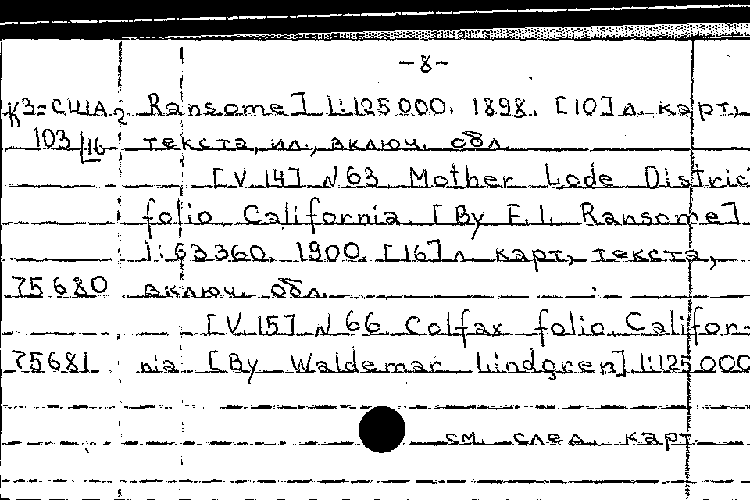 -8-
К3=США2 Ransome] 1:125000. 1898. [10] л. карт,
103/16 текста, ил., включ. обл.
[V.14] №63 Mother Lode Distric
folio California. [By F.L. Ransome]
1:63360. 1900. [16] л карт, текста,
75680 включ. обл.
[V.15] №66 Colfax folio Califor-
75681 nia [By Waldemar Lindgren]. 1:125000
см. след. карт